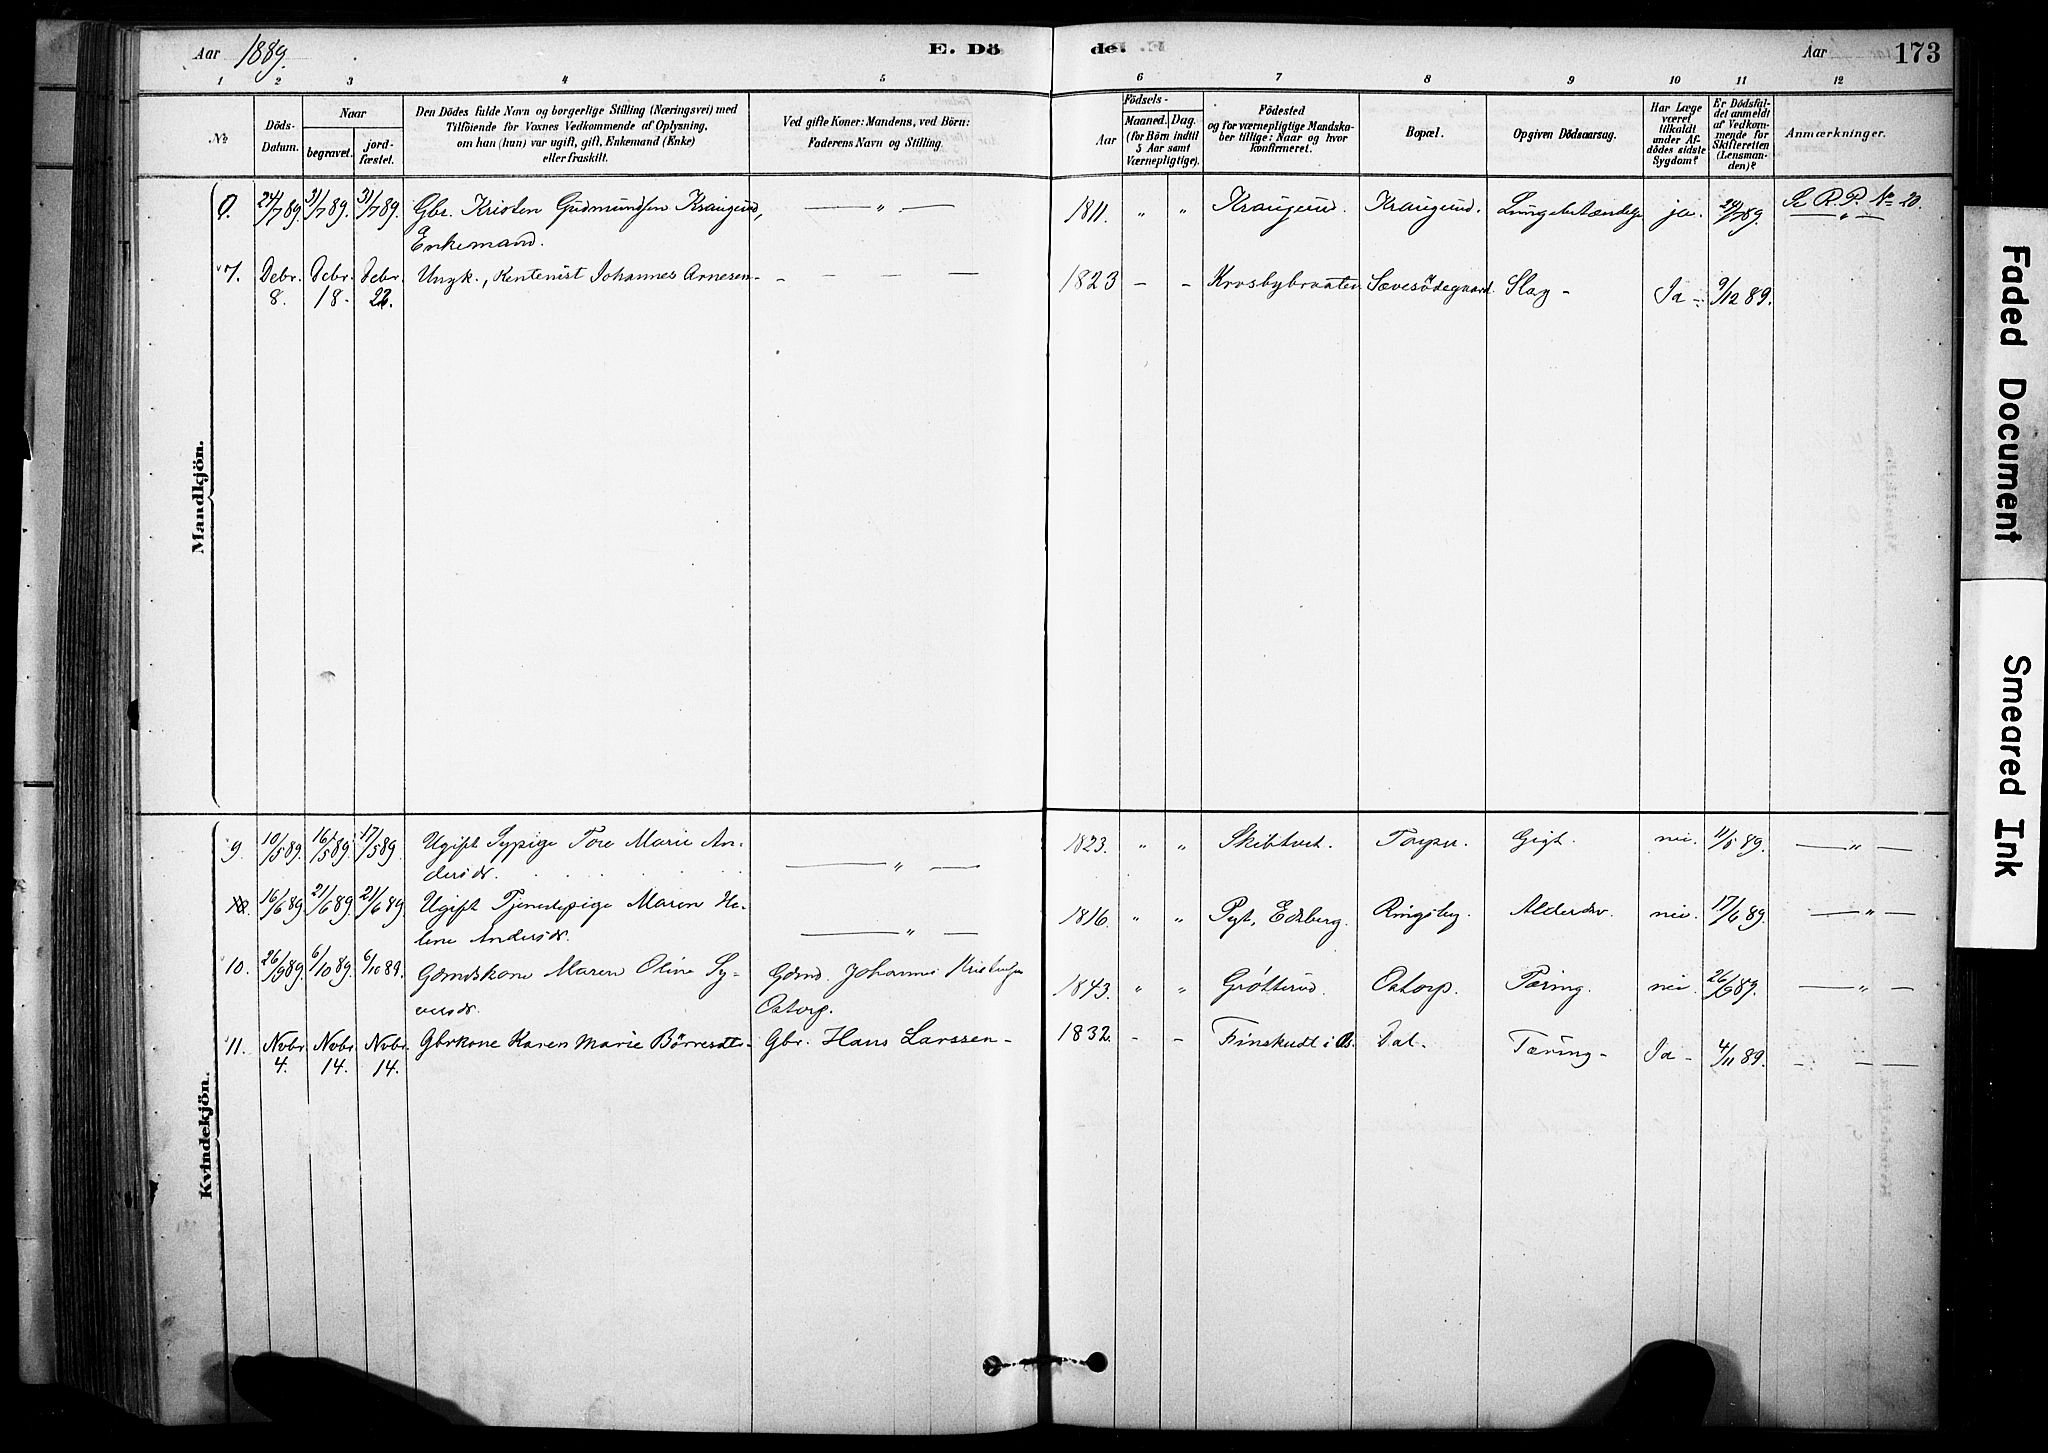 Aar 1889. E. Dö de. Aar 173
1 2 3 4 5 6 7 8 9 10 11 12
No
Döds-
Datum.
Naar
begravet.
jord-
fæstet.
Den Dödes fulde Navn og borgerlige Stilling (Næringsvei) med
Tilföiende for Voxnes Vedkommende af Oplysning,
om han (hun) var ugift, gift, Enkemand (Enke)
eller fraskilt.
Ved gifte Koner: Mandens, ved Börn:
Faderens Navn og Stilling.
Födsels-
Aar
Maaned. Dag.
(for Börn indtil
5 Aar samt
Værnepligtige).
Födested
og for værnepligtige Mandska-
ber tillige: Naar og hvor
konfirmeret.
Bopæl.
Opgiven Dödsaarsag.
Har Læge
været
tilkaldt
under Af-
dödes sidste
Sygdom?
Er Dödsfal-
det anmeldt
af Vedkom-
mende for
Skifteretten
(Lensman-
den)?
Anmærkninger.
Mandkjön.
0. 24/789. 31/789. 31/789. Gbr. Kristen Gudmundsen Kraugerud, — " — 1811. " " Kraugerud. Kraugerud. Lungebetændelse ja. 24/789. Se R. P. No 20.
Enkemand. — " —
7. Debr. Debr. Debr. Ungk., Johannes Arnesen - — — — — 1823 - - Krosbybraaten Sævesödegaard. Slag - Ja - 9/12 89.
8. 18- 22.
Kvindekjön.
9. 10/589. 16/589. 17/589. Ugift Pige Tore Marie An- 1823. " " Skibtvet. Torper. Gigt. nei. 11/5 89. — " —
dersdr. — " —
16/689 21/689. 21/689 Ugift Tjenestepige Maren He- 1816. " " Pgt, Edsberg. Ringsby. Alderdsv. nei. 17/6 89. — " —
lene Andersdr. — " —
10. 26/989. 6/1089. 6/1089. Gaardmandskone Maren Oline Sy- Gdmd. Johannes Kristensen 1843. " " Grötterud. Ostorp. Tæring. nei. 26/989. — " —
versdr. Ostorp.
11. Novbr. Novbr. Novbr. Gbrkone Karen Marie Börresdtr - Gbr. Hans Larssen - 1832. - - Finskudt i Dal - Tæring - Ja - 4/11 89. - — —
4. 14. 14.
Faded Document
Smeared Ink